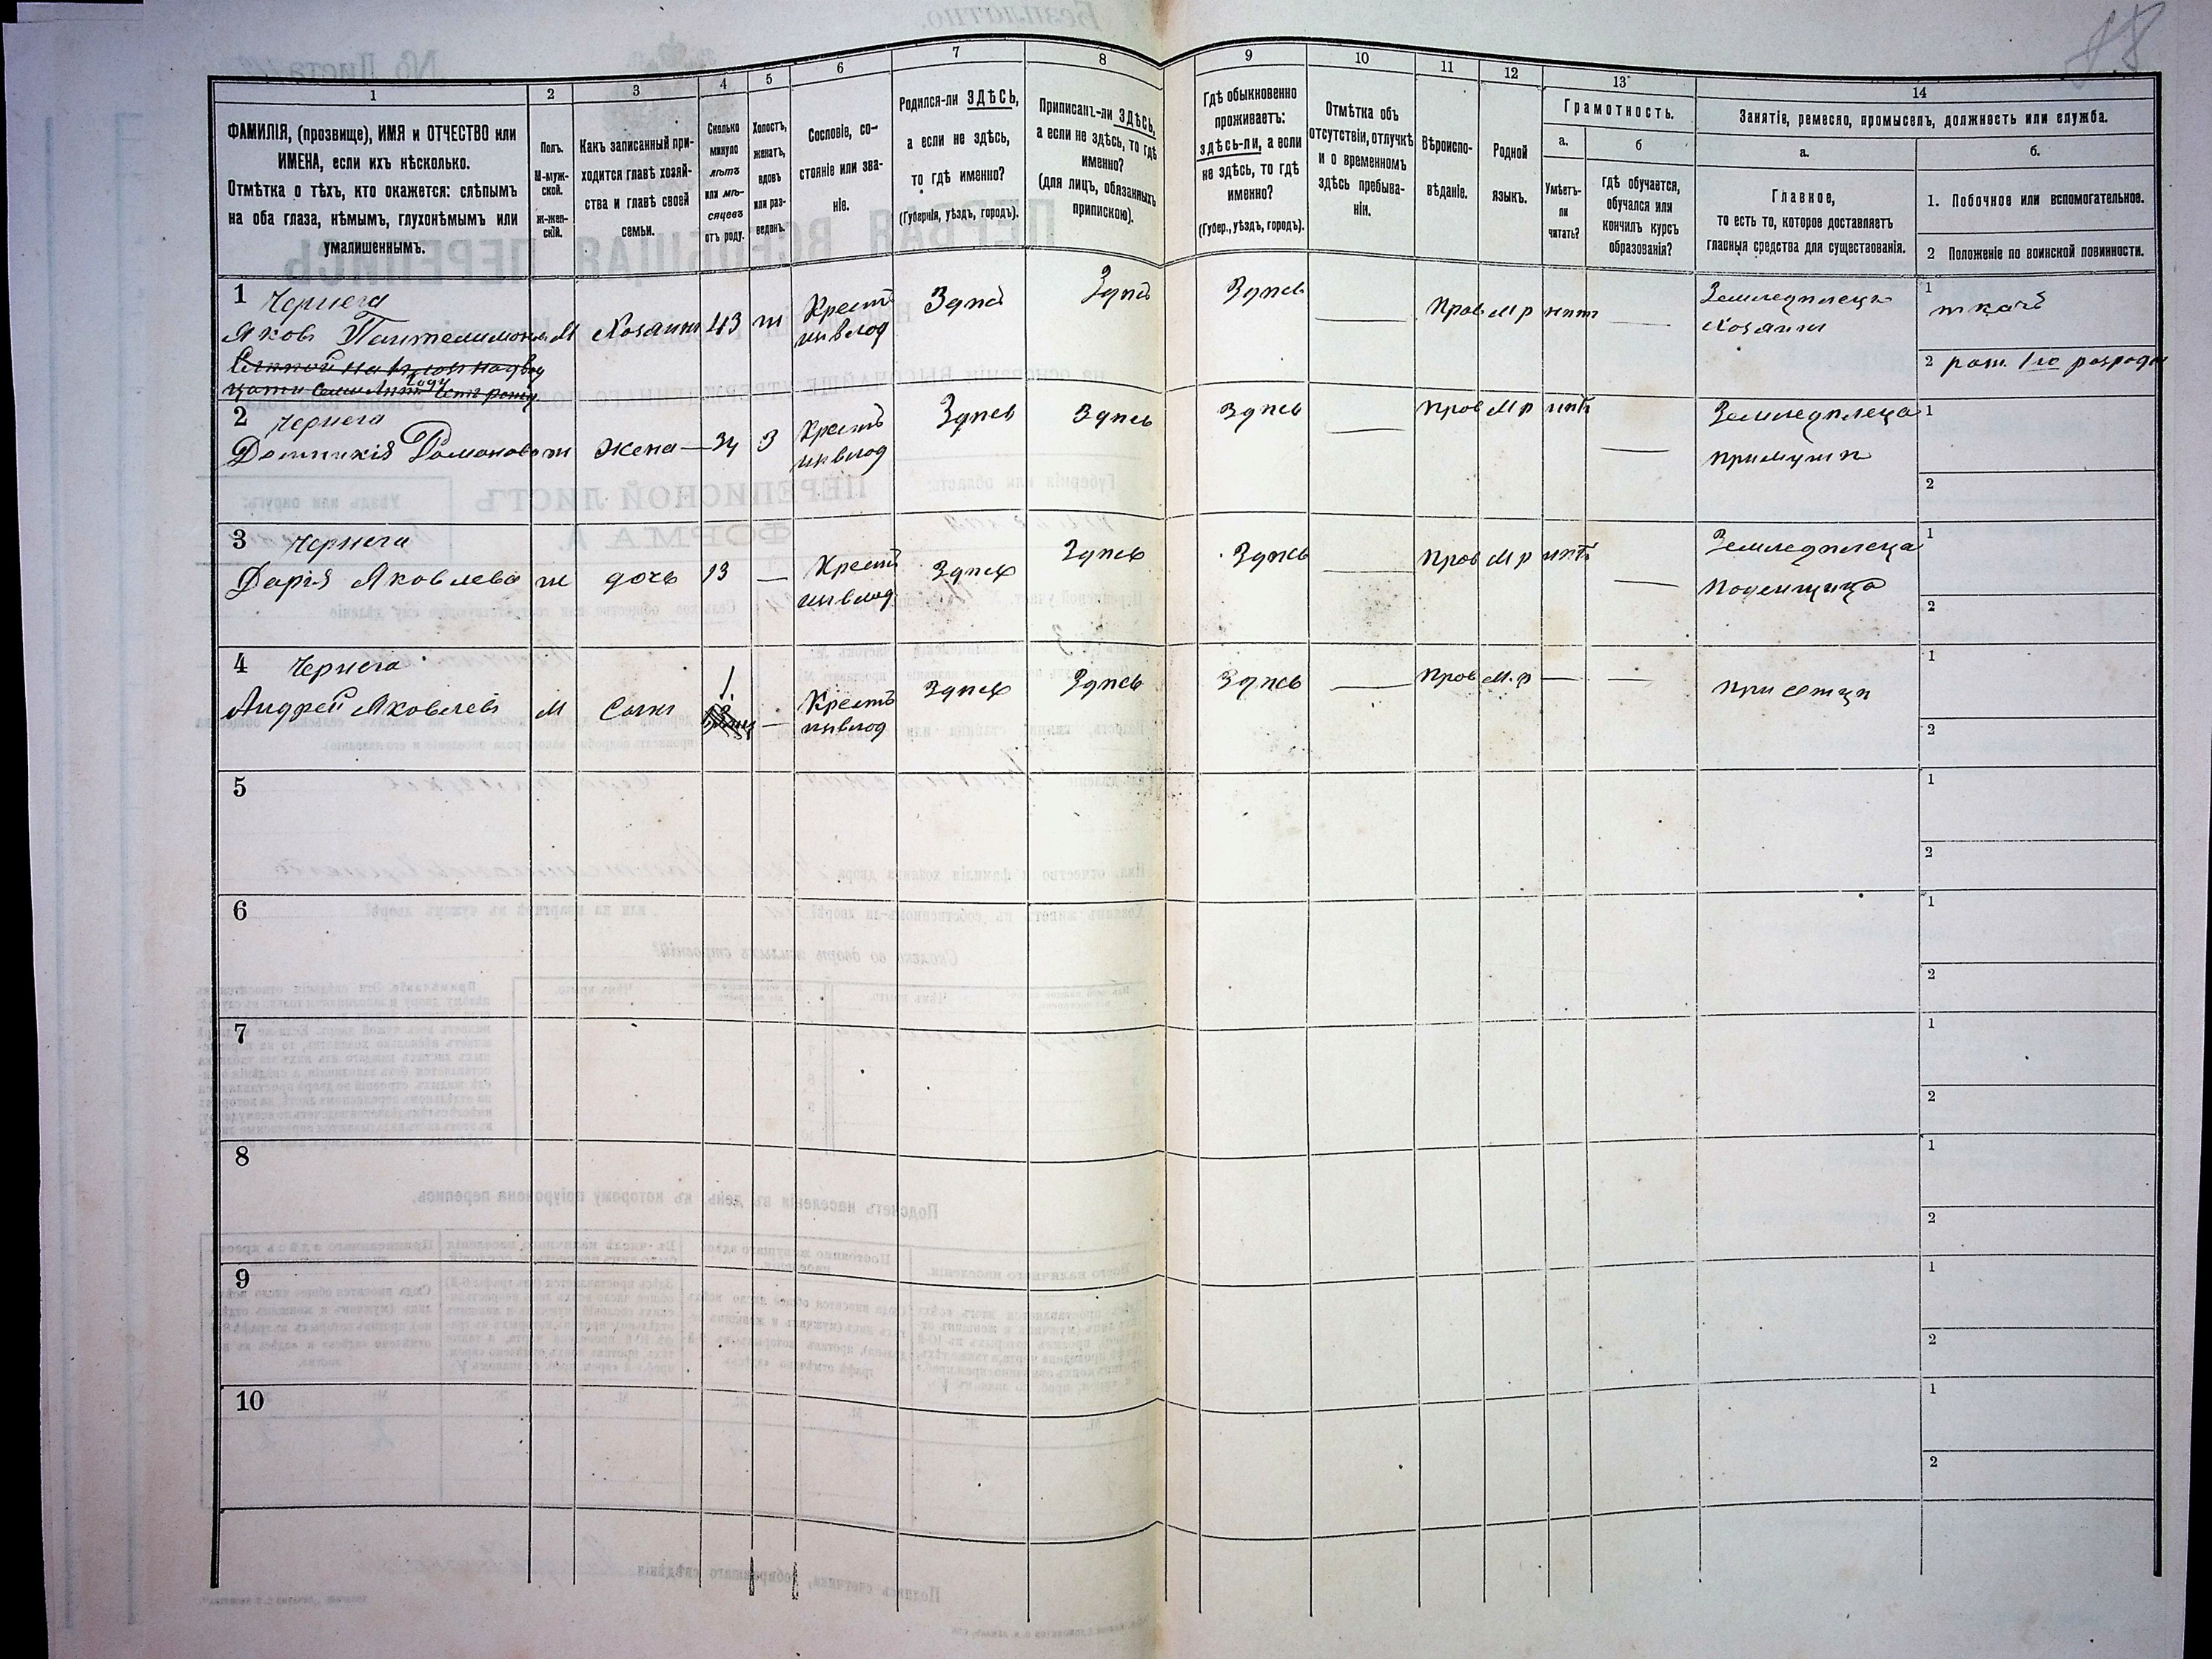 88
1
ФАМИЛІЯ, (прозвище), ИМЯ и ОТЧЕСТВО или
ИМЕНА, если ихъ нѣсколько.
Отмѣтка о тѣхъ, кто окажется: слѣпымъ
на оба глаза, нѣмымъ, глухонѣмымъ или
умалишеннымъ.
2
Полъ.
М-муж-
ской.
ж-жен-
скій.
3
Какъ записанный при-
ходится главѣ хозяй-
ства и главѣ своей
семьи.
4
Сколько
минуло
лѣтъ
или мѣ-
сяцевъ
отъ роду.
5
Холостъ,
женатъ,
вдовъ
или раз-
веденъ.
6
Сословіе, со-
стояніе или зва-
ніе.
7
Родился-ли ЗДѢСЬ,
а если не здѣсь,
то гдѣ именно?
(Губернія, уѣздъ, городъ).
8
Приписанъ-ли ЗДѢСЬ,
а если не здѣсь, то гдѣ
именно?
(для лицъ, обязанныхъ
припискою).
9
Гдѣ обыкновенно
проживаетъ:
здѣсь-ли, а если
не здѣсь, то гдѣ
именно?
(Губер., уѣздъ, городъ).
10
Отмѣтка объ
отсутствіи, отлучкѣ
и о временномъ
здѣсь пребыва-
ніи.
11
Вѣроиспо-
вѣданіе.
12
Родной
языкъ.
13
Грамотность.
а.
Умѣетъ-
ли
читать?
б
гдѣ обучается,
обучался или
кончилъ курсъ
образованія?
14
Занятіе, ремесло, промыселъ, должность или служба.
а.
Главное,
то есть то, которое доставляетъ
главныя средства для существованія.
б.
1. Побочное или вспомогательное.
2 Положеніе по воинской повинности.
1 Чернега
Яковъ Пантелимоновъ М Хозяинъ 43 ж Крестъ Здѣсь Здѣсь Здѣсь — Прав м р нѣтъ — Земледѣлецъ
Хозяинъ
1 ткачъ
2 рат. 1го разряда
2 Чернега
Домникія Романова ж жена — 34 З Крестъ Здѣсь Здѣсь Здѣсь — Прав м р нѣтъ — Земледѣлеца
при мужѣ
1
2
3 Чернега
Дарія Яковлева ж дочь 13 — Крестъ Здѣсь Здѣсь Здѣсь — Прав м р нѣтъ — Земледѣлеца
поденщица
1
2
4 Чернега
Андрей Яковлевъ М Сынъ 1 — Крестъ Здѣсь Здѣсь Здѣсь — Прав м р — — при отцѣ
1
2
5
1
2
6
1
2
7
1
2
8
1
2
9
1
2
10
1
2